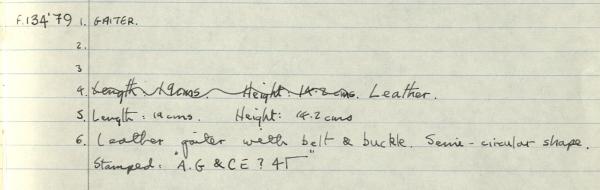 F.134'79 1. GAITER.
2.
3
4. Length: 19cms. Height: 14.2 cms. Leather.
5. Length: 19cms. Height: 14.2 cms
6. Leather gaiter with belt & buckle. Semi-circular shape.
Stamped: "A.G & CE ? 4Γ"